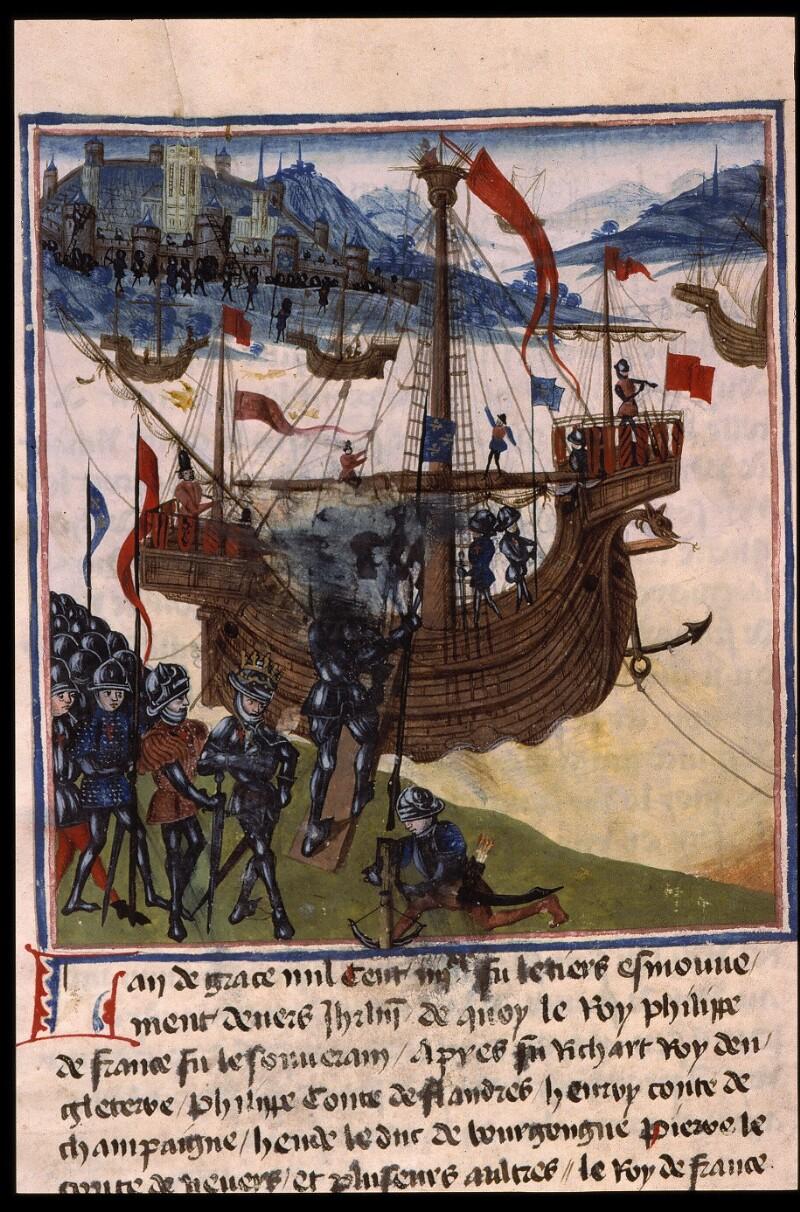 Lan de grace mil Cent iiij^xx fu le tiers esmouue/
ment deuers Jhrlm̄ de quoy le Roy philippe
de france fu le souuerain / Apres fu Richart Roy den/
gleterre / Philippe Conte de flandres / henry conte de
champaigne / heude le duc de bourgongne Pierre le
conte de neuers / et pluseurs aultres // le Roy de france